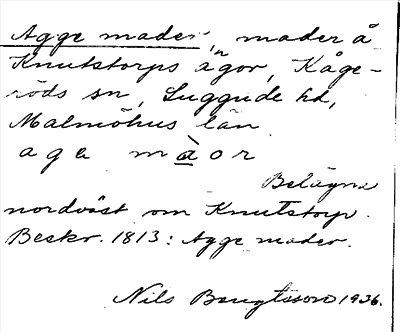 Agge mader, mader å
Knutstorps ägor, Kåge-
röds sn, Luggude hd,
Malmöhus län
age màor
Belägna
nordväst om Knutstorp.
Beskr. 1813: Agge mader.
Nils Bengtsson 1936.